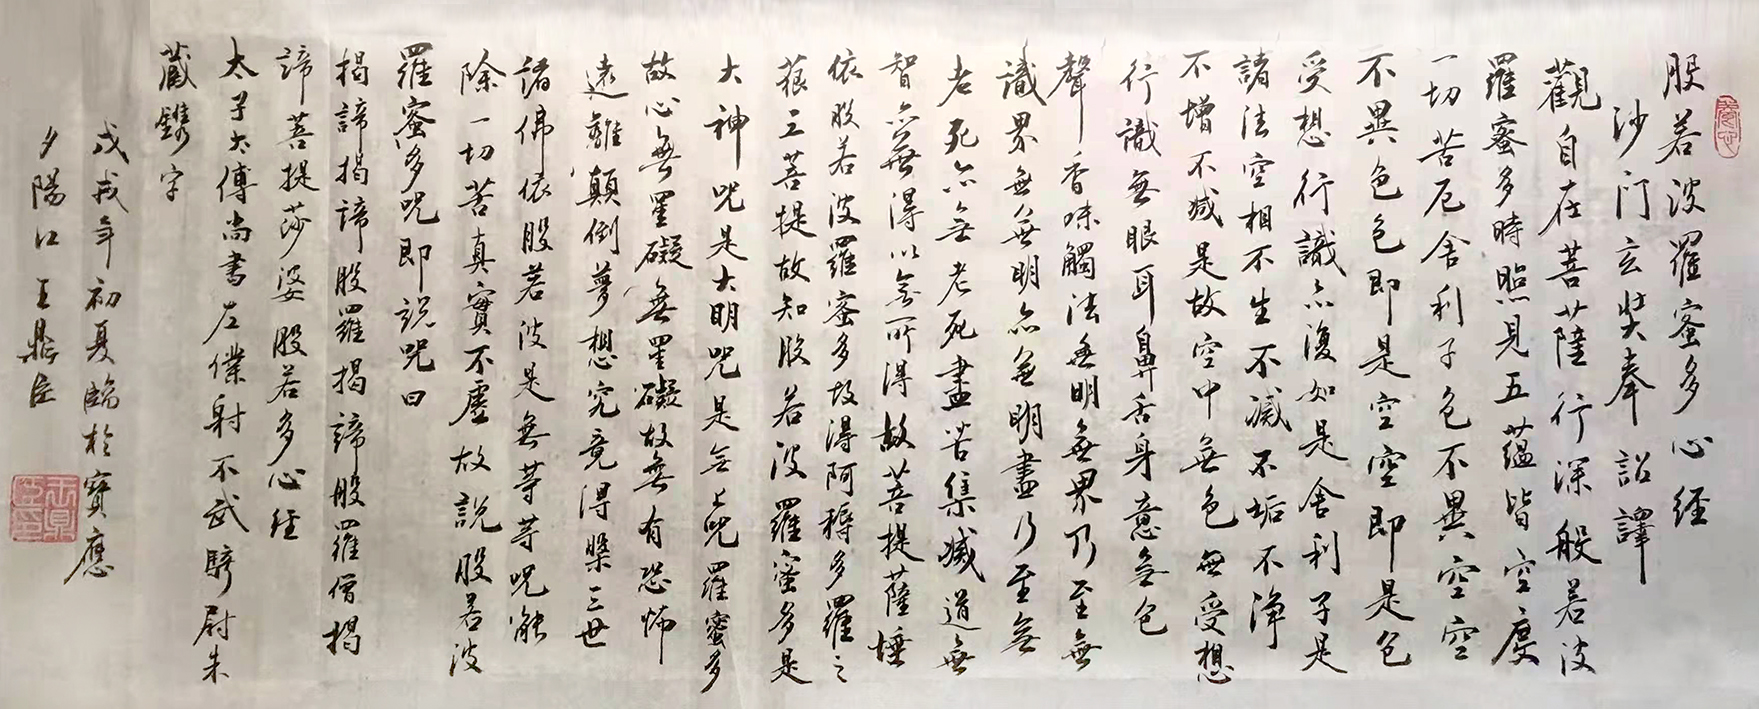 般若波羅蜜多心經
沙門玄奘奉詔譯
觀自在菩薩行深般若波
羅蜜多時照見五蘊皆空度
一切苦厄舍利子色不異空空
不異色色即是空空即是色
受想行識亦復如是舍利子是
諸法空相不生不滅不垢不淨
不增不減是故空中無色無受想
行識無眼耳鼻舌身意無色
聲香味觸法無明無界乃至無
識界無無明亦無無明盡乃至無
老死亦無老死盡苦集滅道無
智亦無得以無所得故菩提薩埵
依般若波羅蜜多故得阿耨多羅三
藐三菩提故知般若波羅蜜多是
大神咒是大明咒是無上咒羅蜜多
故心無罣礙無罣礙故無有恐怖
遠離顛倒夢想究竟得槃三世
諸佛依般若波是無等等咒能
除一切苦真實不虛故說般若波
羅蜜多咒即説咒曰
揭諦揭諦般羅揭諦般羅僧揭
諦菩提莎婆般若多心經
太子太傅尚書左僕射不武騎尉朱
藏鐫字
戊戌年初夏臨於寶應
夕陽江王鼎臣